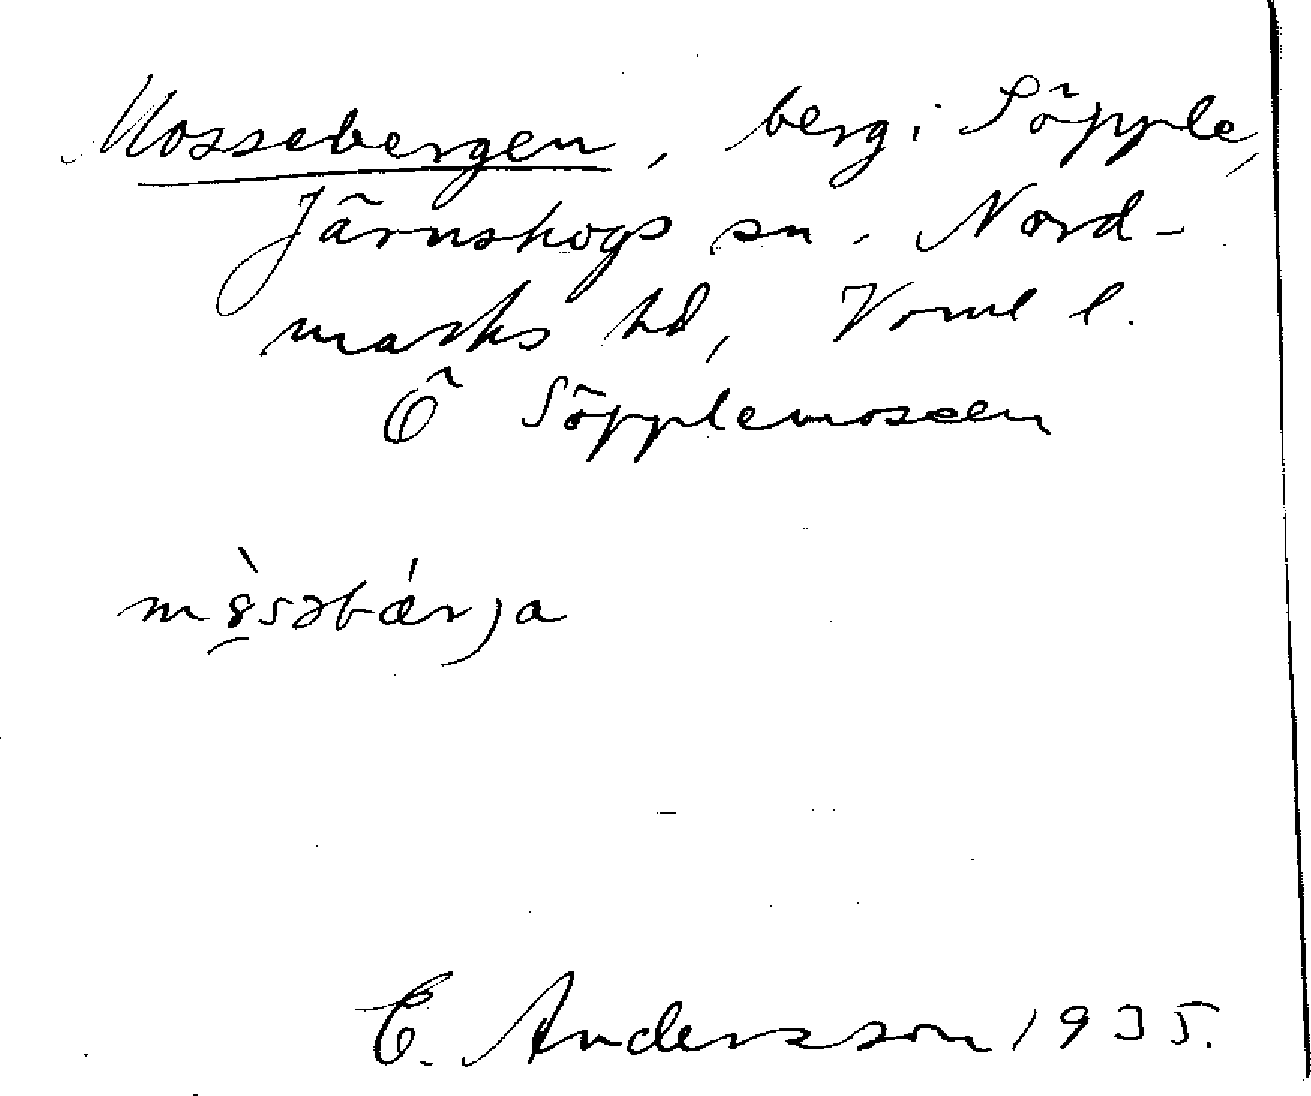 Mossebergen, berg i Söpple,
Järnskogs sn. Nord-
marks hd, Vrml l.
Ö Söpplemossen
C. Andersson 1935.